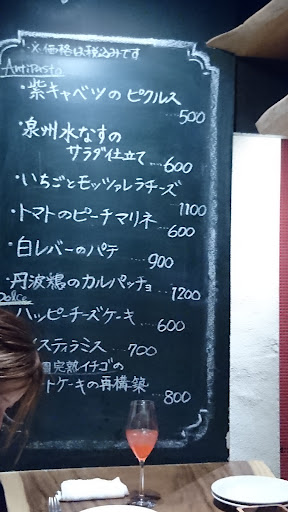 ※価格は税込みです
Antipasto
・紫キャベツのピクルス
500
・泉州水なすの
サラダ仕立て …600
・いちごとモッツァレラチーズ
1100
・トマトのピーチマリネ
600
・白レバーのパテ
…900
・丹波鶏のカルパッチョ
…1200
Dolce
ハッピーチーズケーキ
…600
スティラミス …700
園完熟イチゴの
トケーキの再構築
…800